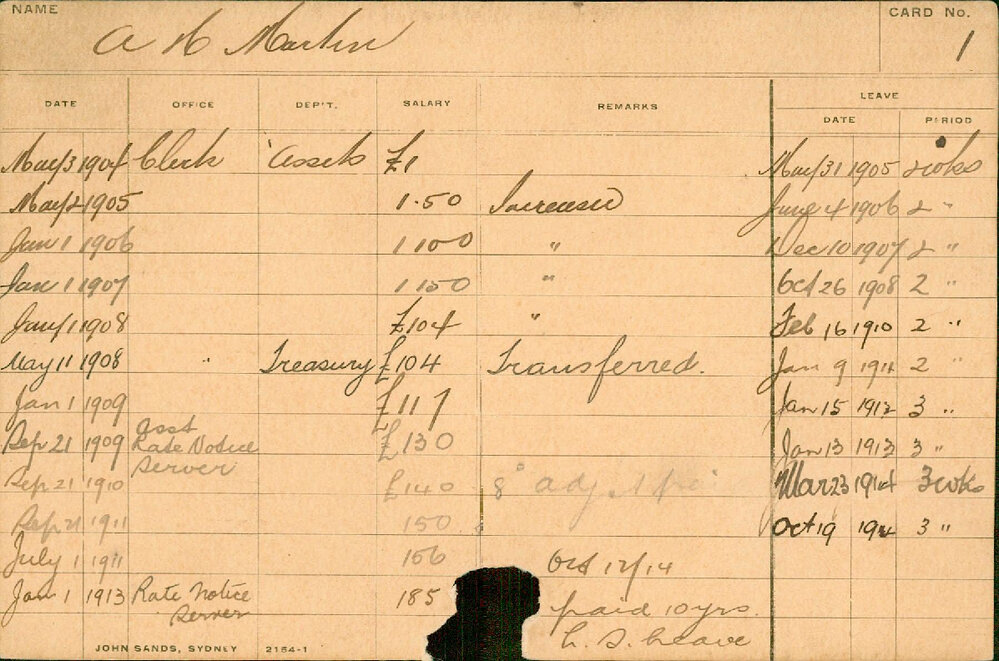 NAME
A H Martin
CARD No.
1
DATE OFFICE DEP'T. SALARY REMARKS LEAVE
DATE PERIOD
May 3 1904 Clerk Assets £1 May 31 1905 2 wks
May 2 1905 1.50 Increased June 4 1906 2 "
Jan 1 1906 1 100 " Dec 10 1907 2 "
Jan 1 1907 1 150 " Oct 26 1908 2 "
Jany 1 1908 £104 " Feb 16 1910 2 "
May 11 1908 " Treasury £104 Transferred. Jan 9 1911 2 "
Jan 1 1909 £117 Jan 15 1912 3 "
Sep 21 1909 Asst Rate Notice Server £130 Jan 13 1913 3 "
Sep 21 1910 £140 Mar 23 1914 3 wks
Sep 21 1911 150 Oct 19 1914 3 "
July 1 1911 156 Oct 12/14
Jan 1 1913 Rate Notice Server 185 paid 10 yrs.
L. S. Leave
JOHN SANDS, SYDNEY 2154-1